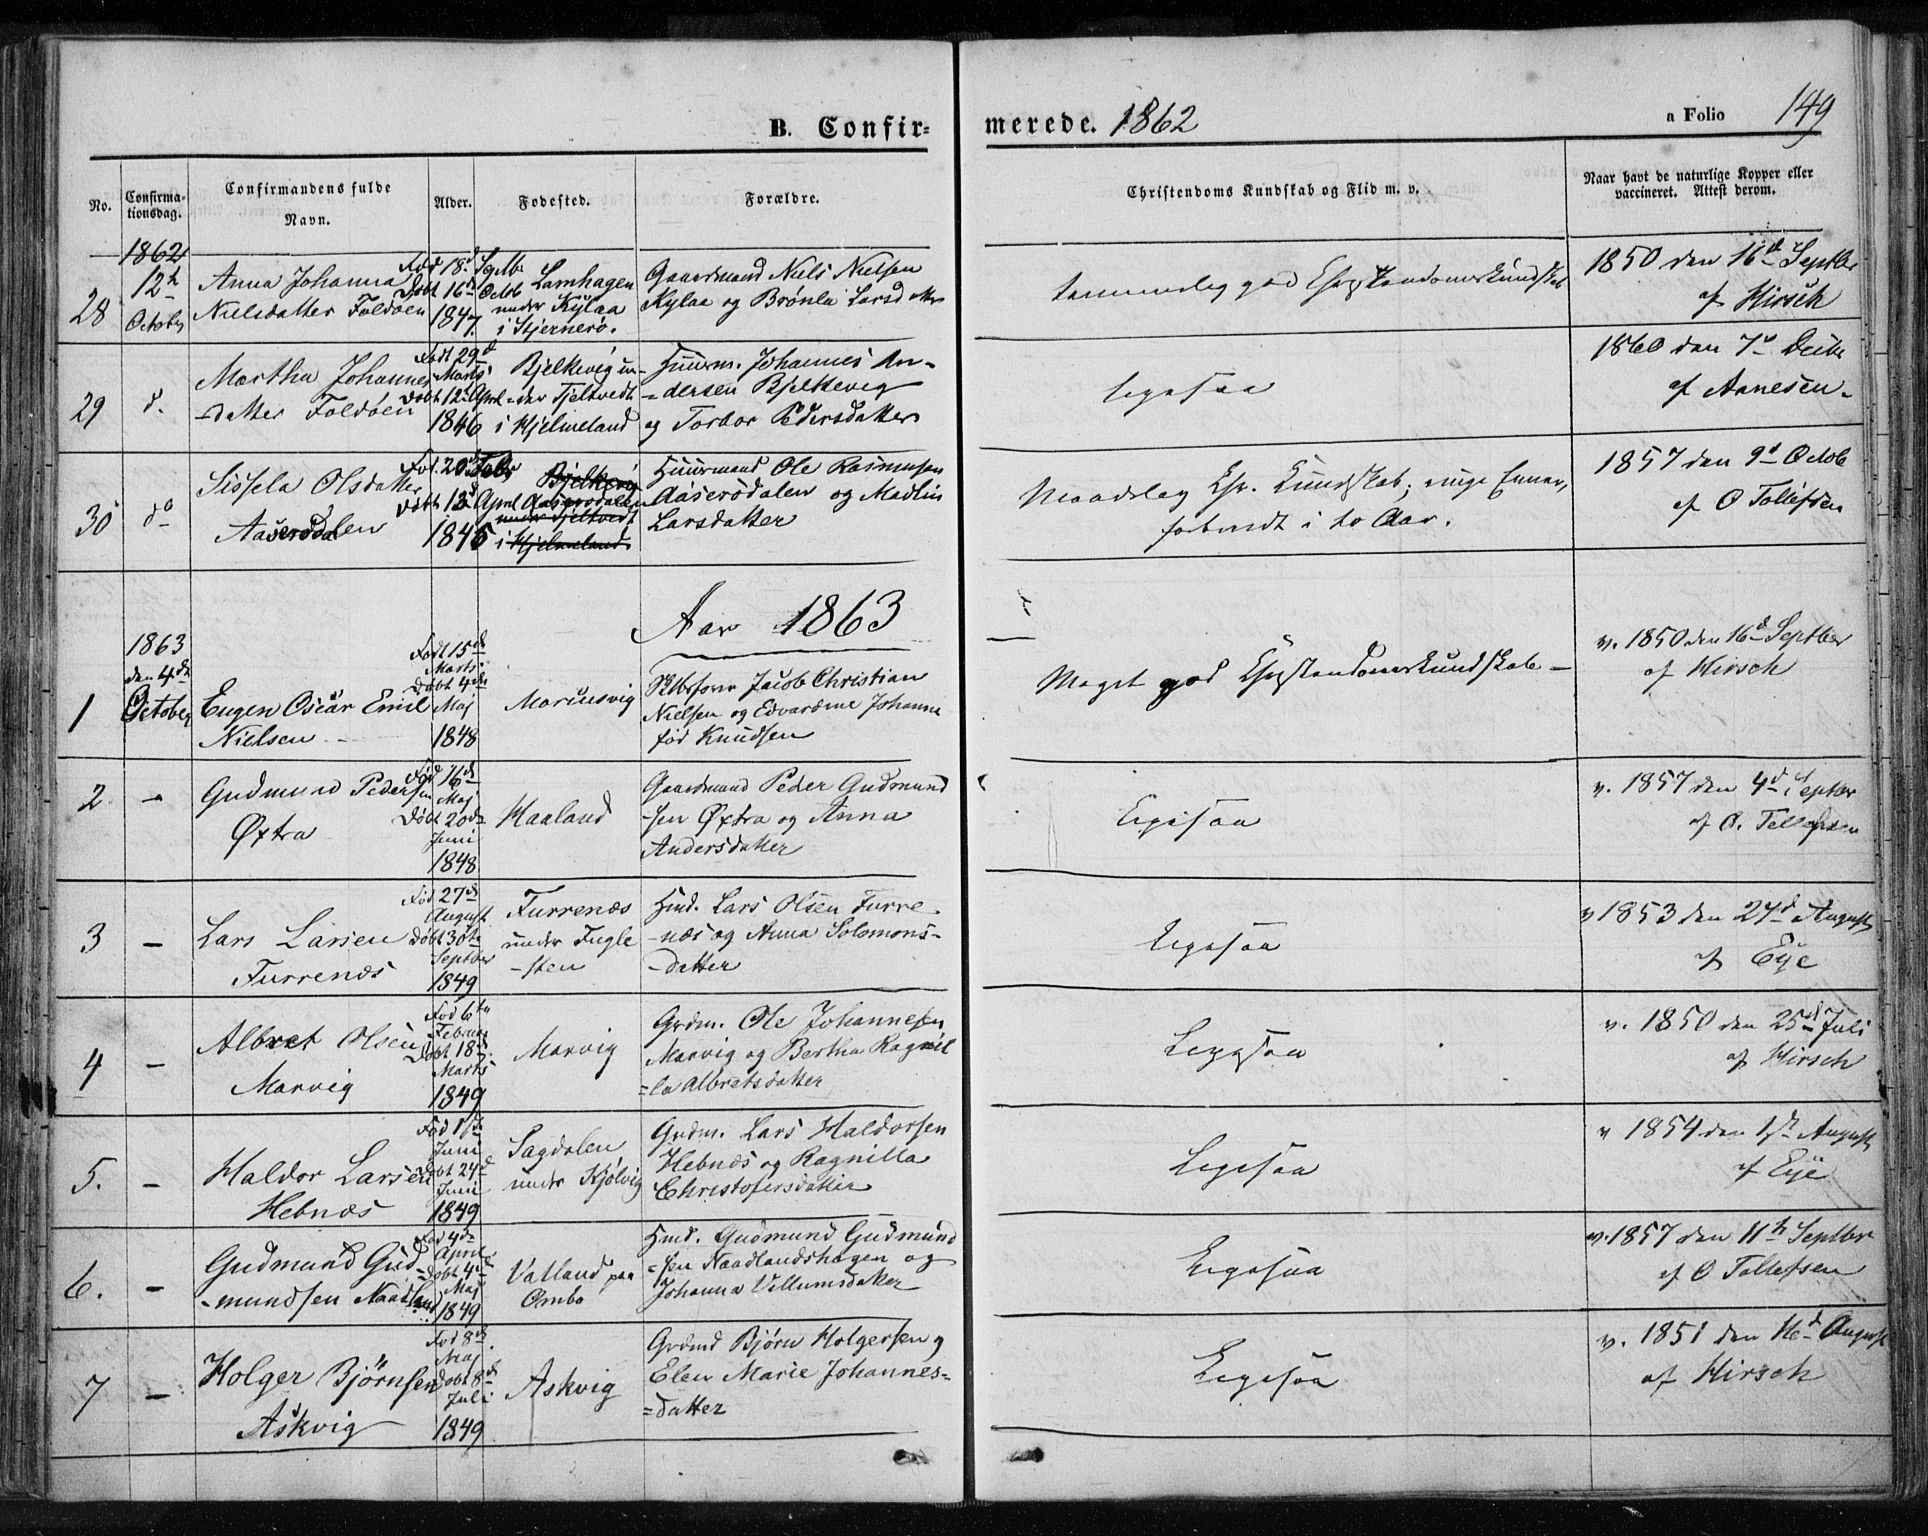 B. Confir=
merede. 1862
a Folio 149
No.
Confirma-
tionsdag.
Confirmandens fulde
Navn.
Alder.
Fødested.
Forældre.
Christendoms Kundskab og Flid m. v.
Naar havt de naturlige Kopper eller
vaccineret. Attest derom.
1862
28
12te
October
Anna Johanna
Nielsdatter Foldøen
Fød 18d Sptbr
Døbt 16de Octob
1847.
Lamhagen
under Kylaa
i Stjernerø.
Gaardmand Niels Nielsen
Kylaa og Brønla Larsdatter
temmelig god Christendomskundskab
1850 den 16d Septbr
af Hirsch
29
d.
Martha Johannes
-datter Foldøen
Født 29d
Marts
Døbt 12 April
1846
Bjelkevig un-
=der Tjeltvedt
i Hjelmeland
Huusm. Johannes An-
=dersen Bjelkevig
og Torbor Pedersdatter
ligesaa
1860 den 7de Decbr
af Aanesen.
30
do
Sissela Olsdatter
Aaserødalen
Fød. 20d Febr
Døbt 13d April
1845
Bjelkevig
Aaserødalen
under Tjeltvedt
i Hjelmeland.
Huusmand Ole Rasmusen
Aaserødalen og Madlin
Larsdatter
Maadelig Chr. Kundskab; ringe Evner,
forberedt i to Aar.
1857 den 9d Octob
af O Tollefsen
Aar 1863
1
1863
den 4de
October
Eugen Oscar Emil
Nielsen
Født 15de
Marts
Døbt 4de
Maj
1848
Marvusvig
Jacob Christian
Nielsen og Edvardine Johanne
fød Knudsen
Meget god Christendomskundskab -
v. 1850 den 16d Septbr
af Hirsch
2. -
Gudmund Pedersen
Øxtra
Fød 16de
Maj
Døbt 20de
Juni
1848
Haaland
Gaardmand Peder Gudmund
-sen Øxtra og Anna
Andersdatter
Ligesaa
v. 1857 den 4d Septbr
af O. Tollefsen
3 -
Lars Larsen
Furrenæs
Fød 27de
August
Døbt 30te
Septbr
1849
Furrenæs
under Fugle
-sten
Hmd. Lars Olsen Furre
-næs og Anna Solomons-
-datter
Ligesaa
v 1853 den 24d August
af Eye
4 -
Albret Olsen
Marvig
Fød 6te
Februar
Døbt 18de
Marts
1849
Marvig
Grdm. Ole Johannesen
Marvig og Bertha Ragnil
=la Albretsdatter
Ligesaa
v. 1850 den 25d Juli
af Hirsch
5. -
Haldor Larsen
Hebnæs
Fød 1ste
Juni
Døbt 24d
Juni
1849
Sagdalen
under Kjølvig
Grdm. Lars Haldorsen
Hebnæs og Ragnilla
Christofersdatter
Ligesaa
v 1854 den 1ste August
af Eye
6. -
Gudmund Gud
-mundsen Naadland
Fød 4de
April
Døbt 4de
Maj
1849
Vatland paa
Ombo
Hmd. Gudmund Gudmund
=sen Naadlandshagen og
Johanna Villumsdatter
Ligesaa
v. 1857 den 11te Septbr
af O Tollefsen
7 -
Holger Bjørnsen
Askvig
Fød 8de
Maj
Døbt 8de
Juli
1849
Askvig
Grdmd Bjørn Holgersen og
Elen Marie Johannes=
=datter
Ligesaa
v. 1851 den 16d August
af Hirsch